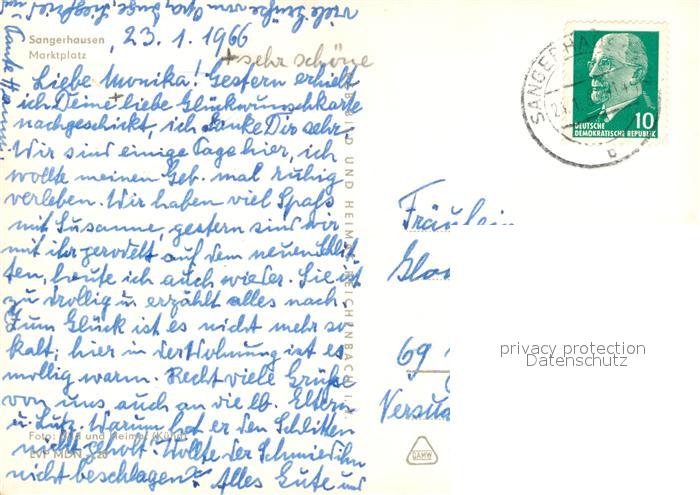 viele Grüße von Opa,
Sangerhausen
Marktplatz
23.1.1966
+ sehr schöne
Liebe Monika! Gestern erhielt
ich Deine + liebe Glückwunschkarte
nachgeschickt, ich danke Dir sehr.
Wir sind einige Tage hier, ich
wollte meinen Geb. mal ruhig
verleben. Wir haben viel Spaß
mit Susanne, gestern sind wir
mit ihr gerodelt auf dem neuen Schlit-
ten, heute ich auch wieder. Sie ist
zu drollig u. erzählt alles nach.
Zum Glück ist es nicht mehr so
kalt; hier in der Wohnung ist es
mollig warm. Recht viele Grüße
von uns auch an die lb. Eltern
u. Lutz. Warum hat er den Schlitten
nicht geholt? Wollte der Schmied ihn
nicht beschlagen? Alles Gute und
Tante Hanni
Foto: Bild und Heimat (Kühn)
EVP MDN 0,20
BILD UND HEIMAT REICHENBACH i. V.
SANGERHAUSEN
10
DEUTSCHE
DEMOKRATISCHE REPUBLIK
b
Fräulein
69
DAMW
privacy protection
Datenschutz